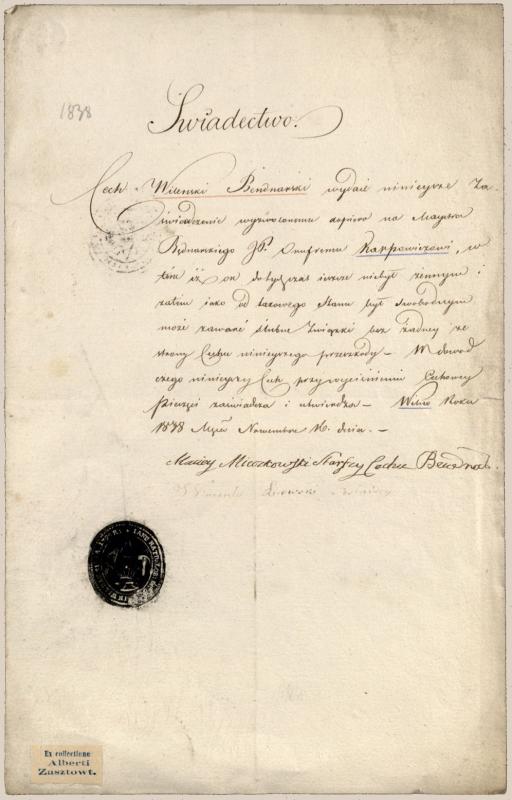 1838
Swiadectwo.
Cech Wilenski Bendnarski wydaie ninieysze Za-
swiadczenie wyzwolonemu dopiero na Maystra
Będnarskiego JP. Onufremu Karpowiczowi, w
tém iż on dotychczas ieszcze niebył żennym i
zatém iako od takowego Stanu był Swobodnym
może zawrzeć ślubne Związki bez żadney ze
strony Cechu ninieyszego przeszkody — W dowod
czego ninieyszy Cech przy wyciśnieniu Cechowey
Pieczęci zaświadcza i utwierdza — Wilno Roku
1838 Nowembra 16. dnia. —
Maciey Mieczkowski Starszy Cechu
Ex collectione
Alberti
Zasztowt.